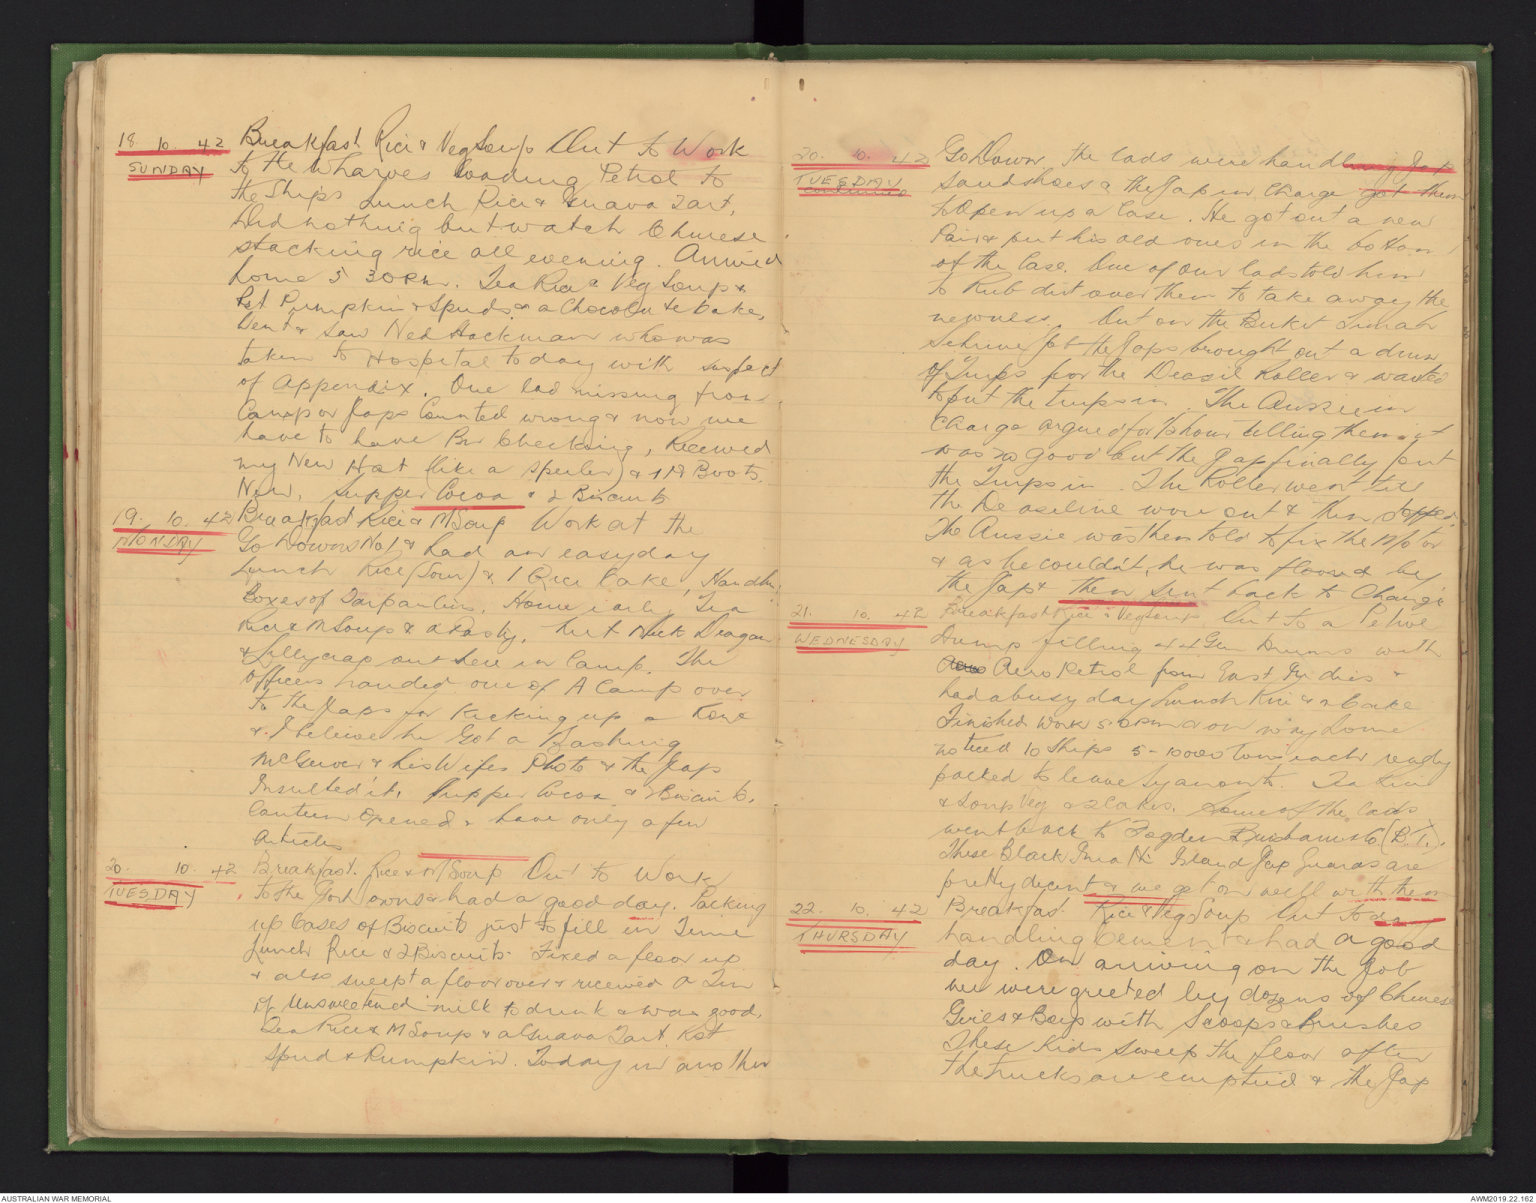 18. 10. 42
SUNDAY
Breakfast Rice & Veg Soup Out to Work
to the Wharves loading Petrol to
the Ships Lunch Rice & Guava Tart,
Did nothing but watch Chinese
stacking rice all evening. Arrived
home 5 30 PM. Tea Rice & Veg Soup &
Pumpkin & Spuds & a Chocolate Cake,
Went & saw Ned Hackman who was
taken to Hospital today with suspect
of Appendix. One lad missing from
Camp or Japs Counted wrong & now we
have to have Checking, Received
my New Hat (like a ) & 1 Pr Boots.
New. Supper Cocoa & 2 Biscuits
19. 10. 42
MONDAY
Breakfast Rice & M Soup Work at the
Go Downs No 1 & had an easy day
Lunch Rice (Sour) & 1 Rice Cake, Handling
Boxes of Tarpaulin. Home early Tea
Rice & M Soup & a Pasty. Met Deagan
& Lillycrap out here in Camp. The
Officers handed one of A Camp over
to the Japs for Kicking up a Row
& I beleive he Got a Bashing
McGuiver & his Wifes Photo & the Jap
Insulted it. Supper Cocoa & 2 Biscuits.
Canteen Opened & have only a few
Articles
20. 10. 42
TUESDAY
Breakfast. Rice & M Soup Out to Work
to the Go downs & had a good day. Packing
up Cases of Biscuits just to fill in Time
Lunch Rice & 2 Biscuits. Fixed a floor up
& also swept a floor over & received a Tin
of Unsweetened milk to drink & was good.
Tea Rice & M Soup & a Guava Tart. Rst
Spud & Pumpkin. Today in another
20. 10. 42
TUESDAY
continued
Go Down the lads were handling Jap
Sandshoes & the Jap in charge got them
to Open up a Case. He got out a new
Pair & put his old ones in the bottom
of the Case. One of our lads told him
to Rub dirt over them to take away the
newness. Out on the Bukit Timah
Schrine Job the Japs brought out a drum
of Turps for the Deasil Roller & wanted
to put the turps in. The Aussie in
Charge argued for ½ hour telling them it
was no good but the Jap finally put
the Turps in. The Roller went till
the Deaseline were out & then stopped.
The Aussie was then told to fix the Motor
& as he couldn't, he was floored by
the Jap & then sent back to Changi
21. 10. 42
WEDNESDAY
Breakfast Rice & Veg Soup Out to a Petrol
Dump filling 44 Gln Drums with
Aero Petrol from East Indies &
had a busy day Lunch Rice & a Cake
Finished Work 5 PM & on way home
noticed 10 Ships 5-10000 tons each ready
packed to leave Synonto. Tea Rice
& Soup Veg & 2 Cakes. Some of the lads
went back to Fogden Brisbane & Co (B.T.).
These Black Island Jap Guards are
pretty decent & we get on well with them
22. 10. 42
THURSDAY
Breakfast Rice & Veg Soup Out today
handling Cement & had a good
day. On arriving on the Job
we were greeted by dozens of Chinese
Girls & Boys with Scoops & Brushes
These Kids sweep the floor after
the trucks are emptied & the Jap
AUSTRALIAN WAR MEMORIAL
AWM2019.22.162